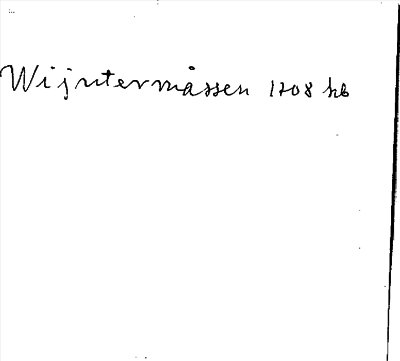 Wijntermåssen 1708 hb